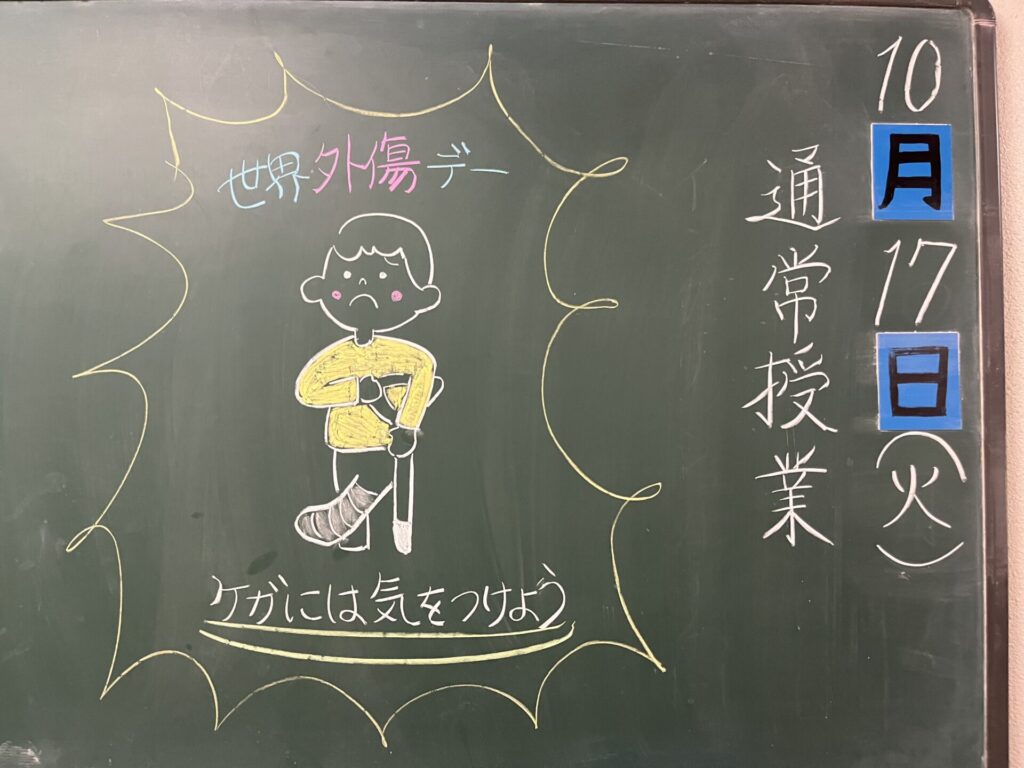 10月17日(火)
通常授業
世界外傷デー
ケガには気をつけよう